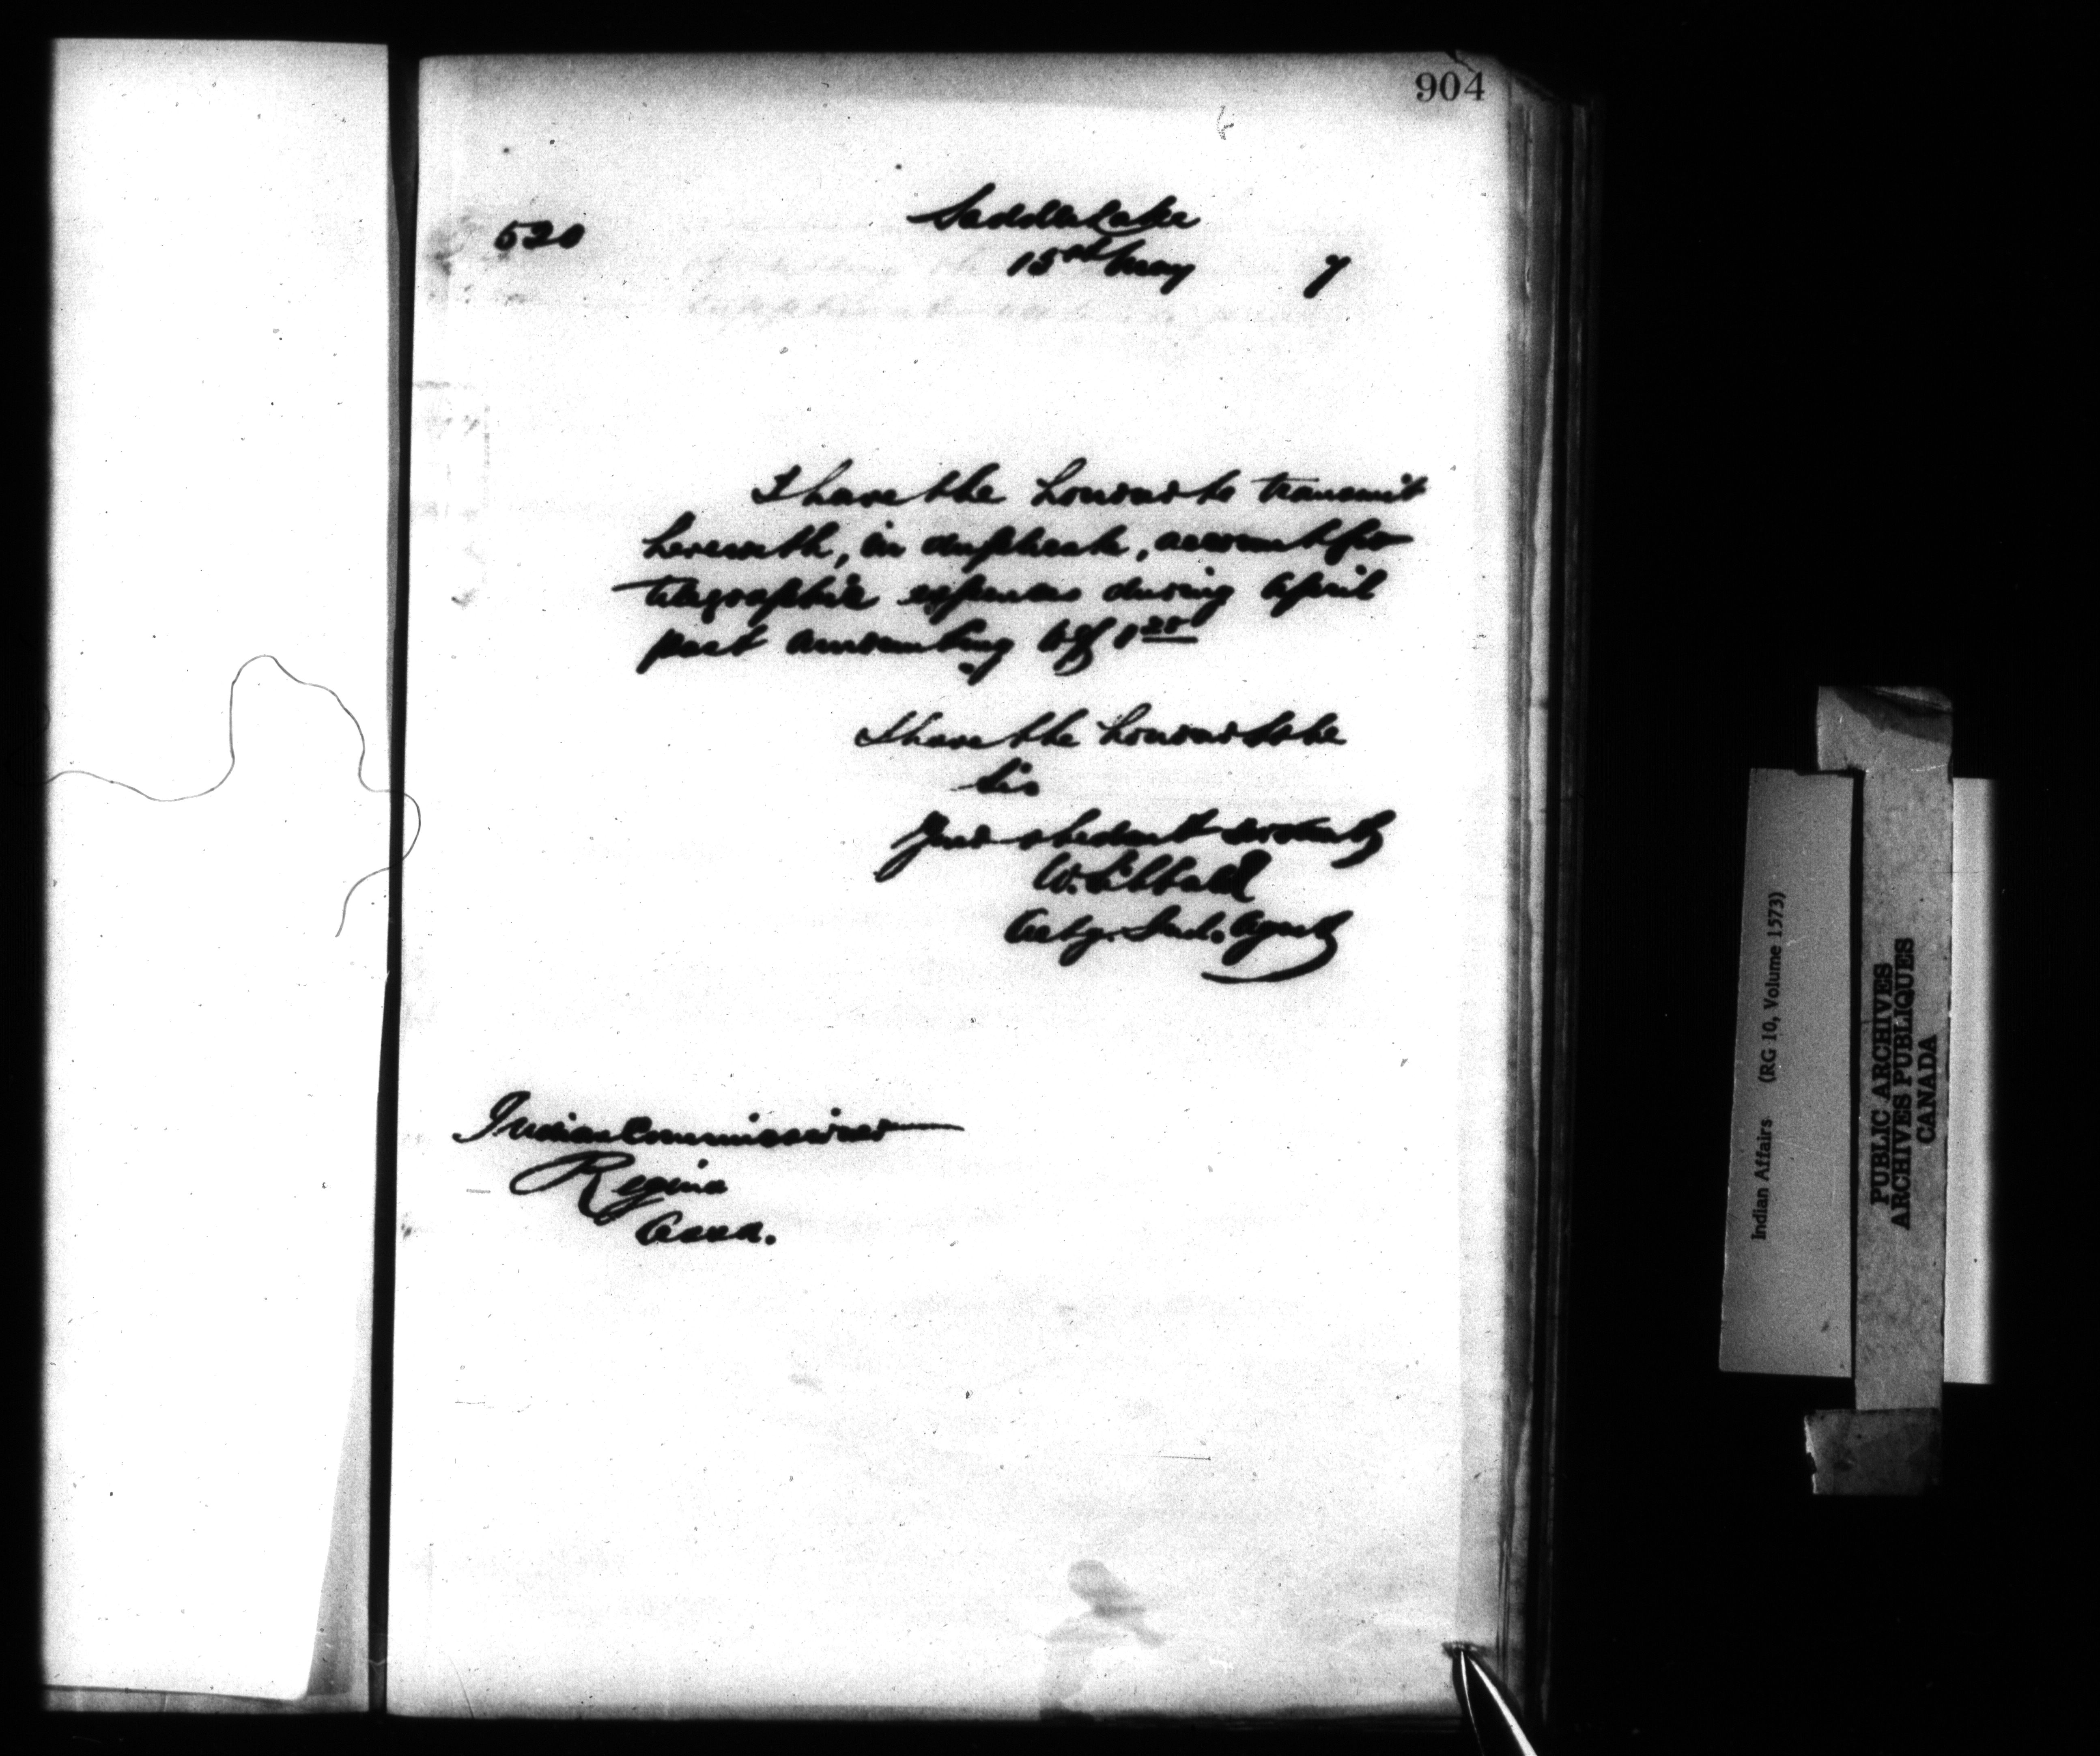 904
520
Saddle Lake
15th May 7
I have the honour to transmit
herewith, in duplicate, account for
telegraphic expenses during April
past amounting to $1.25
I have the honour to be
Sir
Your obedient servant
W. Sibbald
Actg. Ind. Agent
Indian Commissioner
Regina
Assa.
Indian Affairs (RG 10, Volume 1573)
PUBLIC ARCHIVES
ARCHIVES PUBLIQUES
CANADA